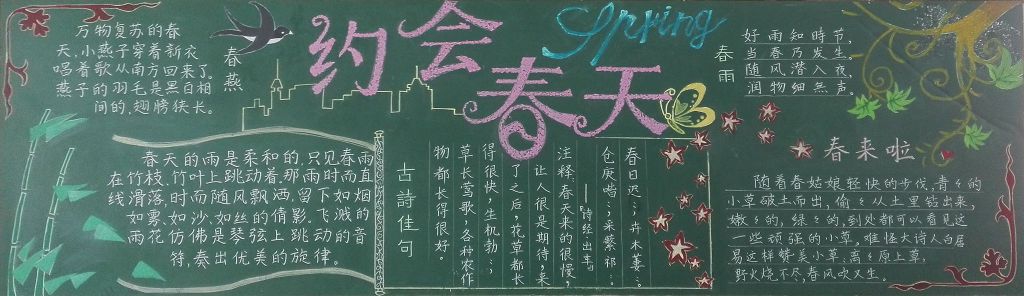 约会春天
Spring
春燕
万物复苏的春
天,小燕子穿着新衣
唱着歌从南方回来了。
燕子的羽毛是黑白相
间的,翅膀狭长。
春天的雨是柔和的,只见春雨
在竹枝、竹叶上跳动着。那雨时而直
线滑落,时而随风飘洒,留下如烟、
如雾、如沙、如丝的倩影。飞溅的
雨花仿佛是琴弦上跳动的音
符,奏出优美的旋律。
古詩佳句
春日迟:,卉木萋:。
仓庚喈:,采蘩祁:。
——诗经出车。
注释:春天来的很慢,
让人很是期待,来
了之后,花草都长
得很快,生机勃:,
草长莺歌,各种农作
物都长得很好。
春雨
好雨知時节,
当春乃发生。
随风潜入夜,
润物细无声。
春来啦
随着春姑娘轻快的步伐,青々的
小草破土而出,偷々从土里钻出来,
嫩々的,绿々的,到处都可以看见这
一些顽强的小草,难怪大诗人白居
易这样赞美小草:离々原上草,
野火烧不尽,春风吹又生。